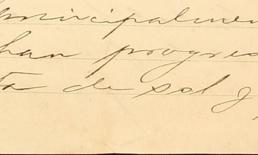 principalmen
han progres
ta de sol y